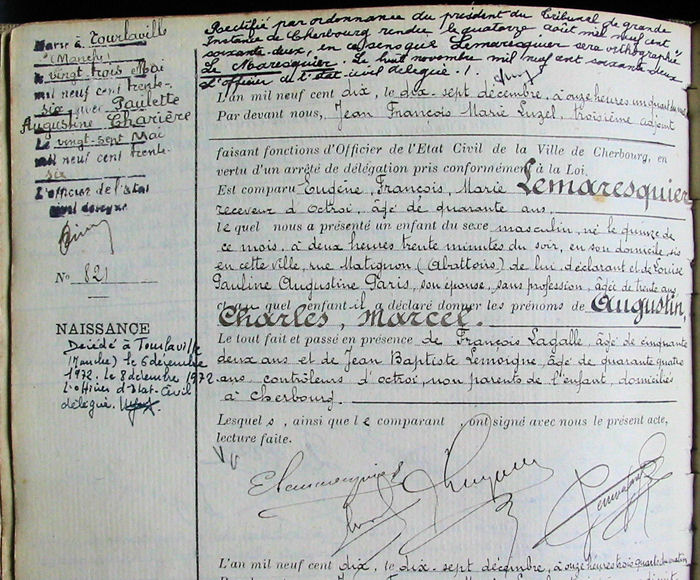 Rectifié par ordonnance du président du Tribunal de grande
Instance de Cherbourg rendue le quatorze août mil neuf cent
soixante-deux, en ce sens que Lemaresquier sera orthographié
Le Maresquier. Le huit novembre mil neuf cent soixante deux
L'officier de l'état-civil délégué.
Marié à Tourlaville
(Manche)
le vingt trois Mai
mil neuf cent trente-
six avec Paulette
Augustine Charière
Le vingt-sept Mai
mil neuf cent trente-
six
L'officier de l'état
civil délégué
No 821
NAISSANCE
Décédé à Tourlaville
(Manche) le 6 décembre
1972. le 8 décembre 1972
L'officier d'Etat-Civil
délégué.
L'an mil neuf cent dix, le dix-sept décembre, à onze heures un quart du matin
Par devant nous, Jean François Marie Luzel, troisième adjoint
faisant fonctions d'Officier de l'Etat Civil de la Ville de Cherbourg, en
vertu d'un arrêté de délégation pris conformément à la Loi.
Est comparu Eugène, François, Marie Lemaresquier
receveur d'octroi, âgé de quarante ans
lequel nous a présenté un enfant du sexe masculin, né le quinze
de ce mois, à deux heures trente minutes du soir, en son domicile, sis
en cette ville, rue Matignon (Abattoirs) de lui, déclarant et de Louise
Pauline Augustine Paris, son épouse, sans profession, âgée de trente ans
et au quel enfant il a déclaré donner les prénoms de Augustin,
Charles, Marcel.
Le tout fait et passé en présence de François Lagalle, âgé de cinquante
deux ans et de Jean Baptiste Lemoigne, âgé de quarante quatre
ans, contrôleurs d'octroi, non parents de l'enfant, domiciliés
à Cherbourg.
Lesquels, ainsi que le comparant, ont signé avec nous le présent acte,
lecture faite.
L'an mil neuf cent dix, le dix-sept décembre, à onze heures trois quarts du matin